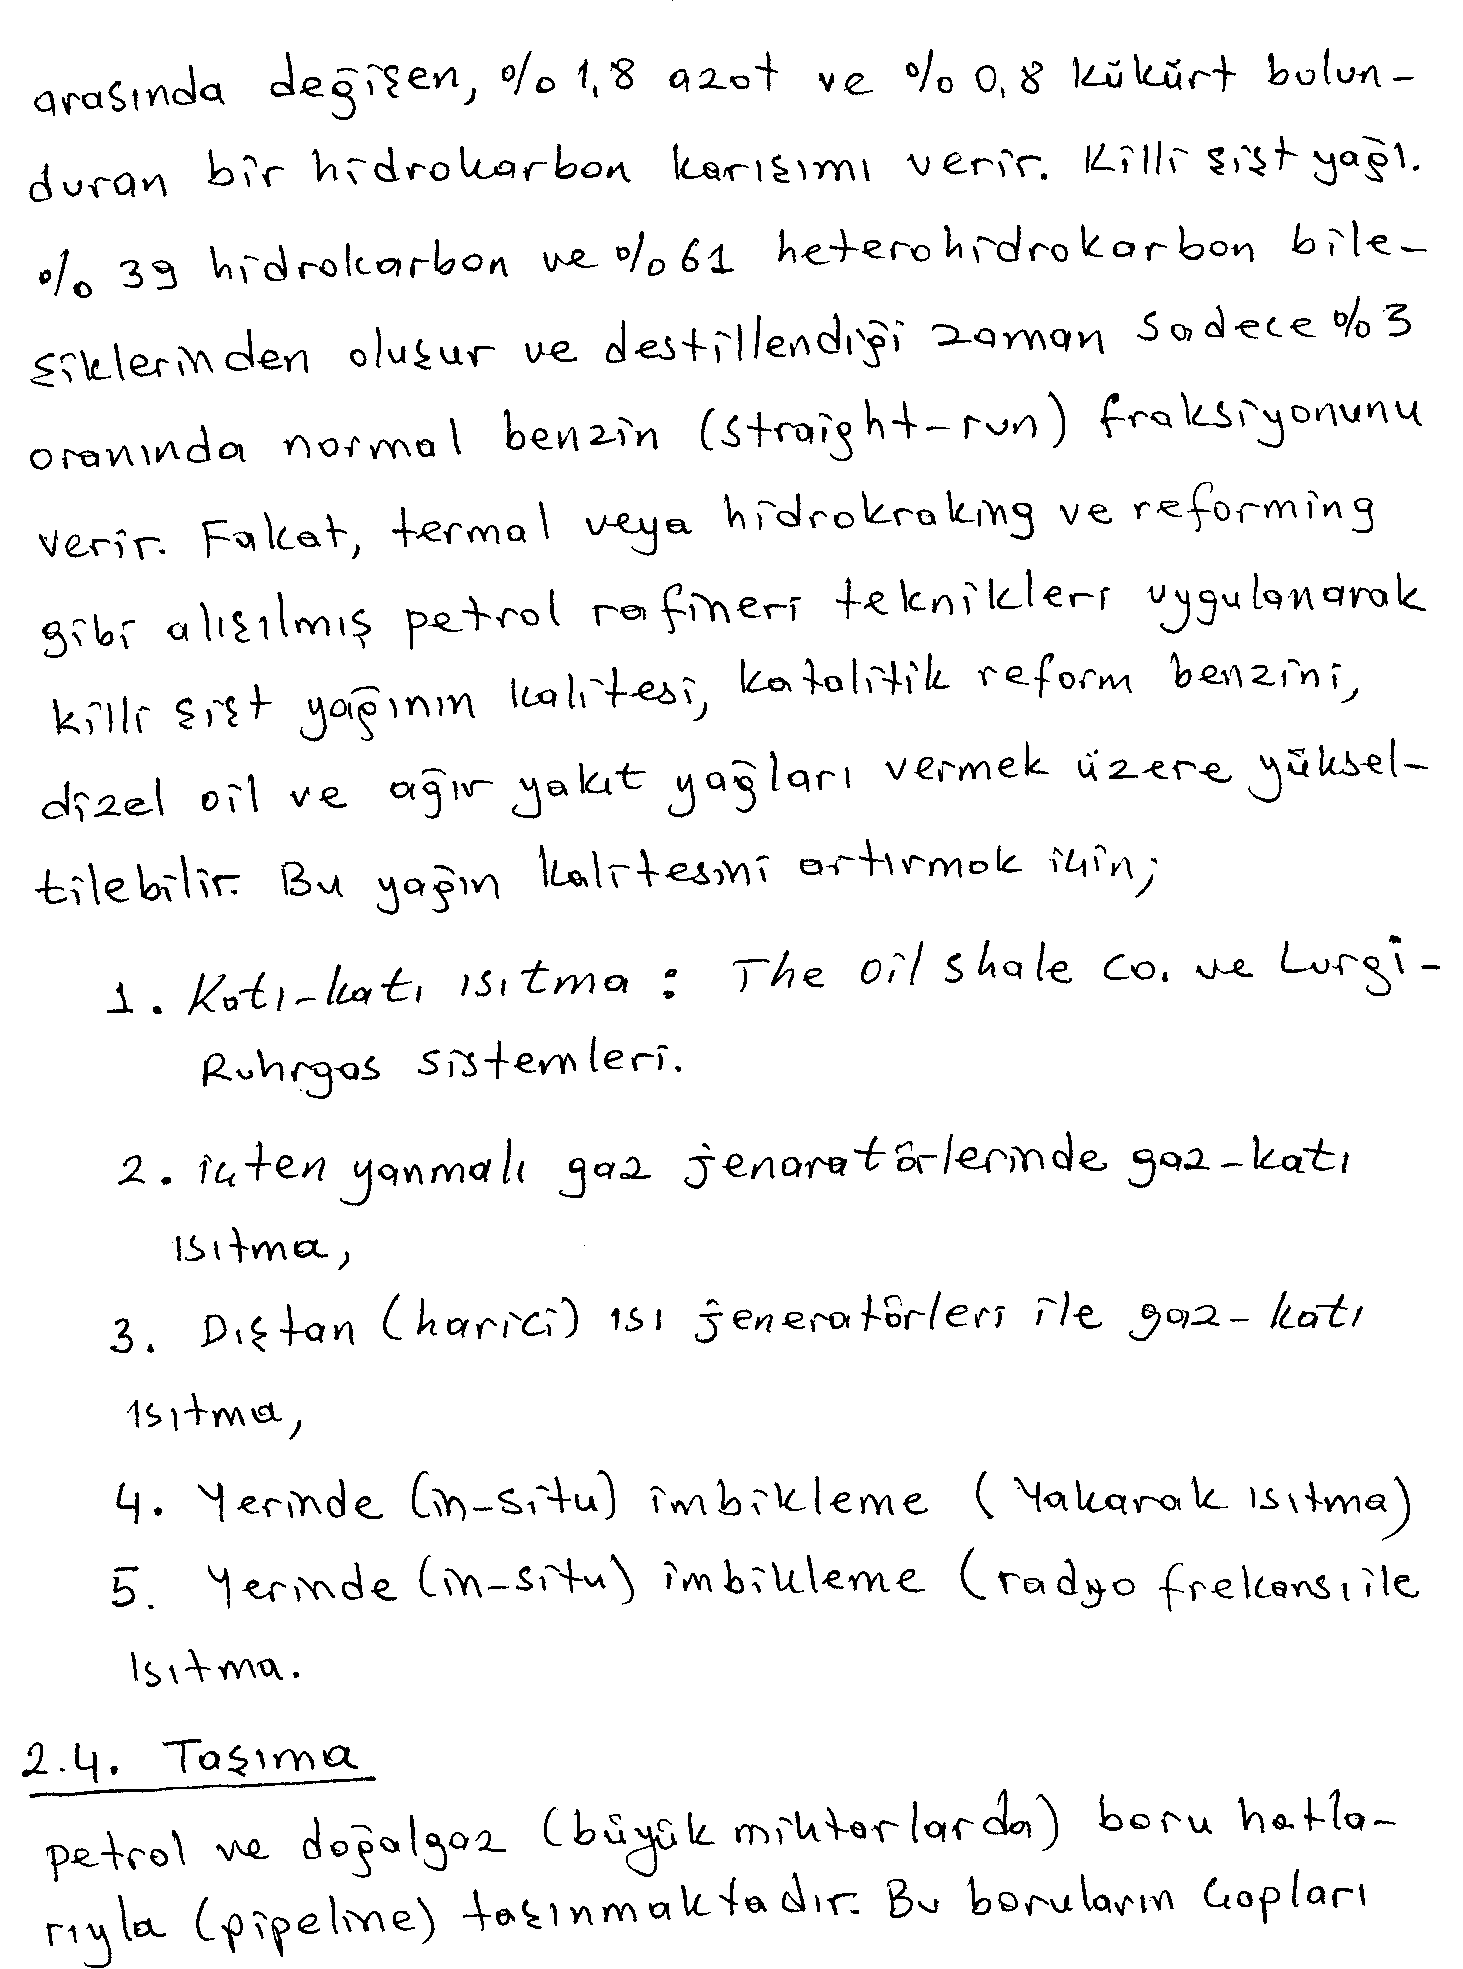 arasında değişen, % 1,8 azot ve % 0,8 kükürt bulun-
duran bir hidrokarbon karışımı verir. Killi şist yağı.
% 39 hidrokarbon ve % 61 heterohidrokarbon bile-
şiklerinden oluşur ve destillendiği zaman sadece % 3
oranında normal benzin (straight-run) fraksiyonunu
verir. Fakat, termal veya hidrokraking ve reforming
gibi alışılmış petrol rafineri teknikleri uygulanarak
killi şist yağının kalitesi, katalitik reform benzini,
dizel oil ve ağır yakıt yağları vermek üzere yüksel-
tilebilir. Bu yağın kalitesini artırmak için;
1. Katı-katı ısıtma : The oil shale co. ve Lurgi-
Ruhrgas sistemleri.
2. içten yanmalı gaz jenaratörlerinde gaz-katı
ısıtma,
3. Dıştan (harici) ısı jeneratörleri ile gaz-katı
ısıtma,
4. Yerinde (in-situ) imbikleme (Yakarak ısıtma)
5. Yerinde (in-situ) imbikleme (radyo frekansı ile
ısıtma.
2.4. Taşıma
petrol ve doğalgaz (büyük miktarlarda) boru hatla-
rıyla (pipeline) taşınmaktadır. Bu boruların çapları